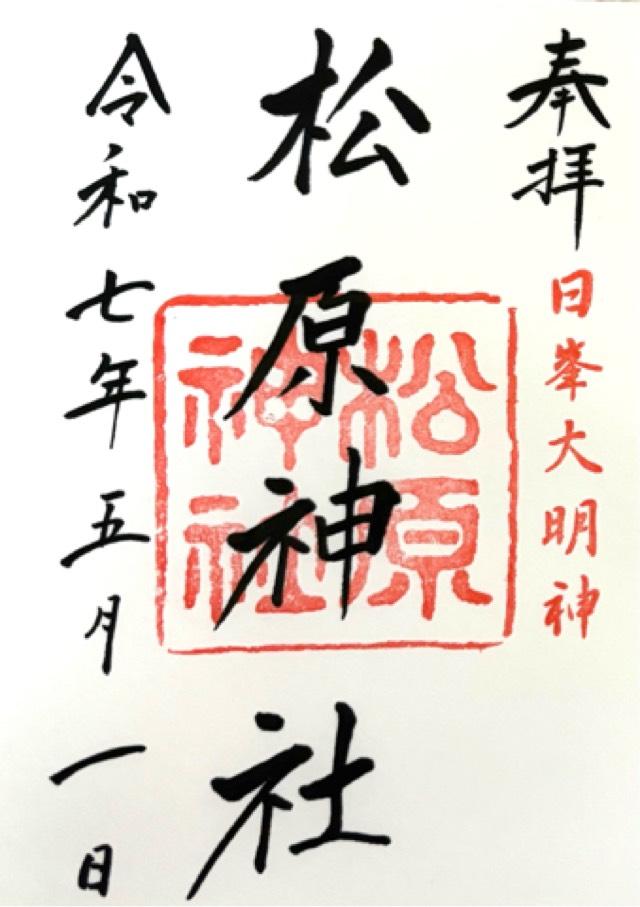 奉拝
日峯大明神
松原神社
松原
神社
令和七年五月一日